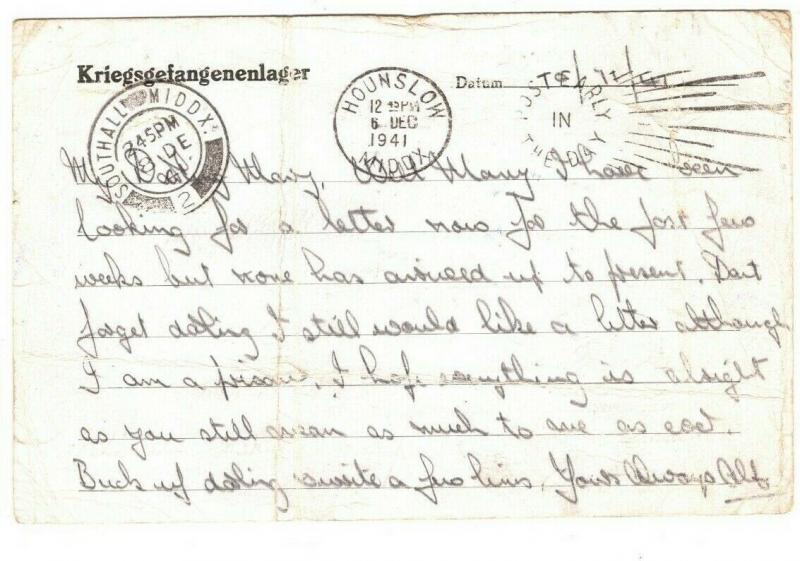 Kriegsgefangenenlager
Datum
SOUTHALL MIDDX.
2 45 PM
DE
41
2
HOUNSLOW
12 PM
6 DEC
1941
MIDDX
POST EARLY
IN
THE DAY
My Mary, Well Mary I have been
looking for a letter now for the past few
weeks but none has arrived up to present. Dont
forget darling I still would like a letter although
I am a prisoner, I hope everything is alright
as you still mean as much to me as ever.
Buck up darling write a few lines, Yours Always Alf.